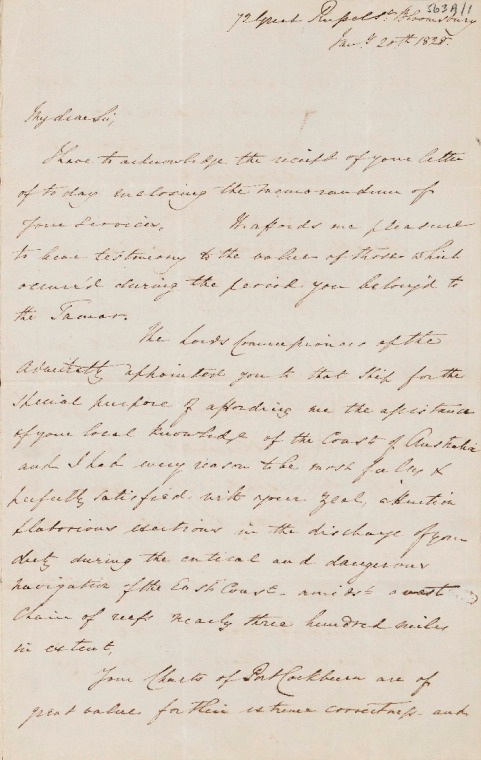 563A/1
72 Great Russel St. Bloomsbury
Jany 20th 1828.
My dear Sir,
I have to acknowledge the receipt of your letter
of to day enclosing the memorandum of
your services. It affords me pleasure
to bear testimony to the value of those which
occurr'd during the period you belong'd to
the Tamar.
The Lords Commissioners of the
Admiralty appointed you to that Ship for the
special purpose of affording me the assistance
of your local knowledge of the Coast of Australia
and I had every reason to be most fully &
perfectly satisfied with your zeal, attention
& laborious exertions in the discharge of your
duty during the critical and dangerous
navigation of the East Coast - amidst a vast
Chain of reefs nearly three hundred miles
in extent,
Your Charts of Port Cockburn are of
great value for their extreme correctness and